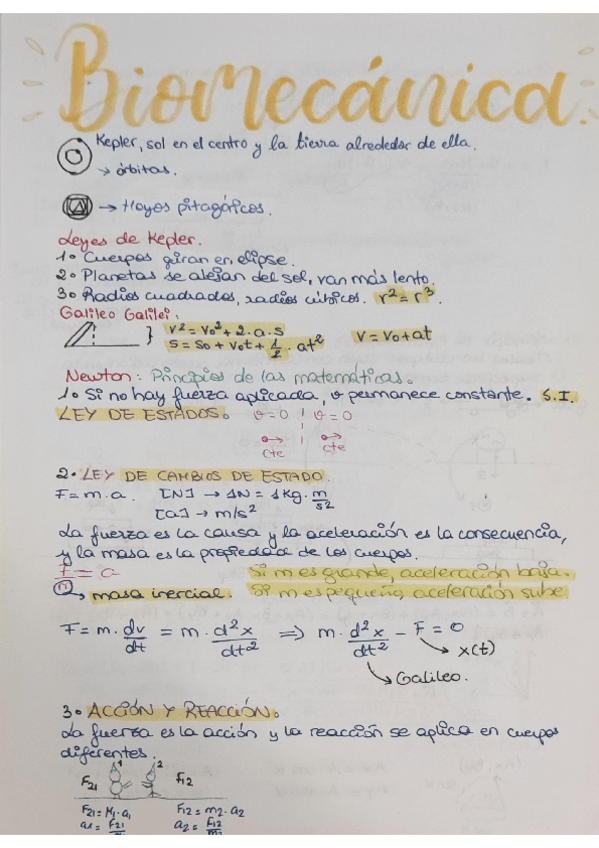 Biomecánica.
Kepler, sol en el centro y la tierra alrededor de ella.
→ órbitas.
→ Hoyos pitagóricos.
Leyes de Kepler.
1º Cuerpos giran en elipse.
2º Planetas se alejan del sol, van más lento.
3º Radios cuadrados, radios cúbicos. r² = r³.
Galileo Galilei:
v² = v₀² + 2·a·s
s = s₀ + v₀t + 1/2 · at² v = v₀ + at
Newton: Principios de las matemáticas.
1º Si no hay fuerza aplicada, v permanece constante. S.I.
LEY DE ESTADOS. v=0 v=0
cte cte
2. LEY DE CAMBIOS DE ESTADO.
F = m·a. [N] → 1N = 1kg · m/s²
[a] → m/s²
La fuerza es la causa y la aceleración es la consecuencia,
y la masa es la propiedad de los cuerpos.
f/m = a Si m es grande, aceleración baja.
→ masa inercial. Si m es pequeña aceleración sube.
F = m · dv/dt = m · d²x/dt² ⇒ m · d²x/dt² − F = 0
→ x(t)
Galileo.
3º ACCIÓN Y REACCIÓN.
La fuerza es la acción y la reacción se aplica en cuerpos
diferentes.
1 2
F₂₁ F₁₂
F₂₁ = M₁·a₁ F₁₂ = m₂·a₂
a₁ = F₂₁ a₂ = F₁₂/m₂